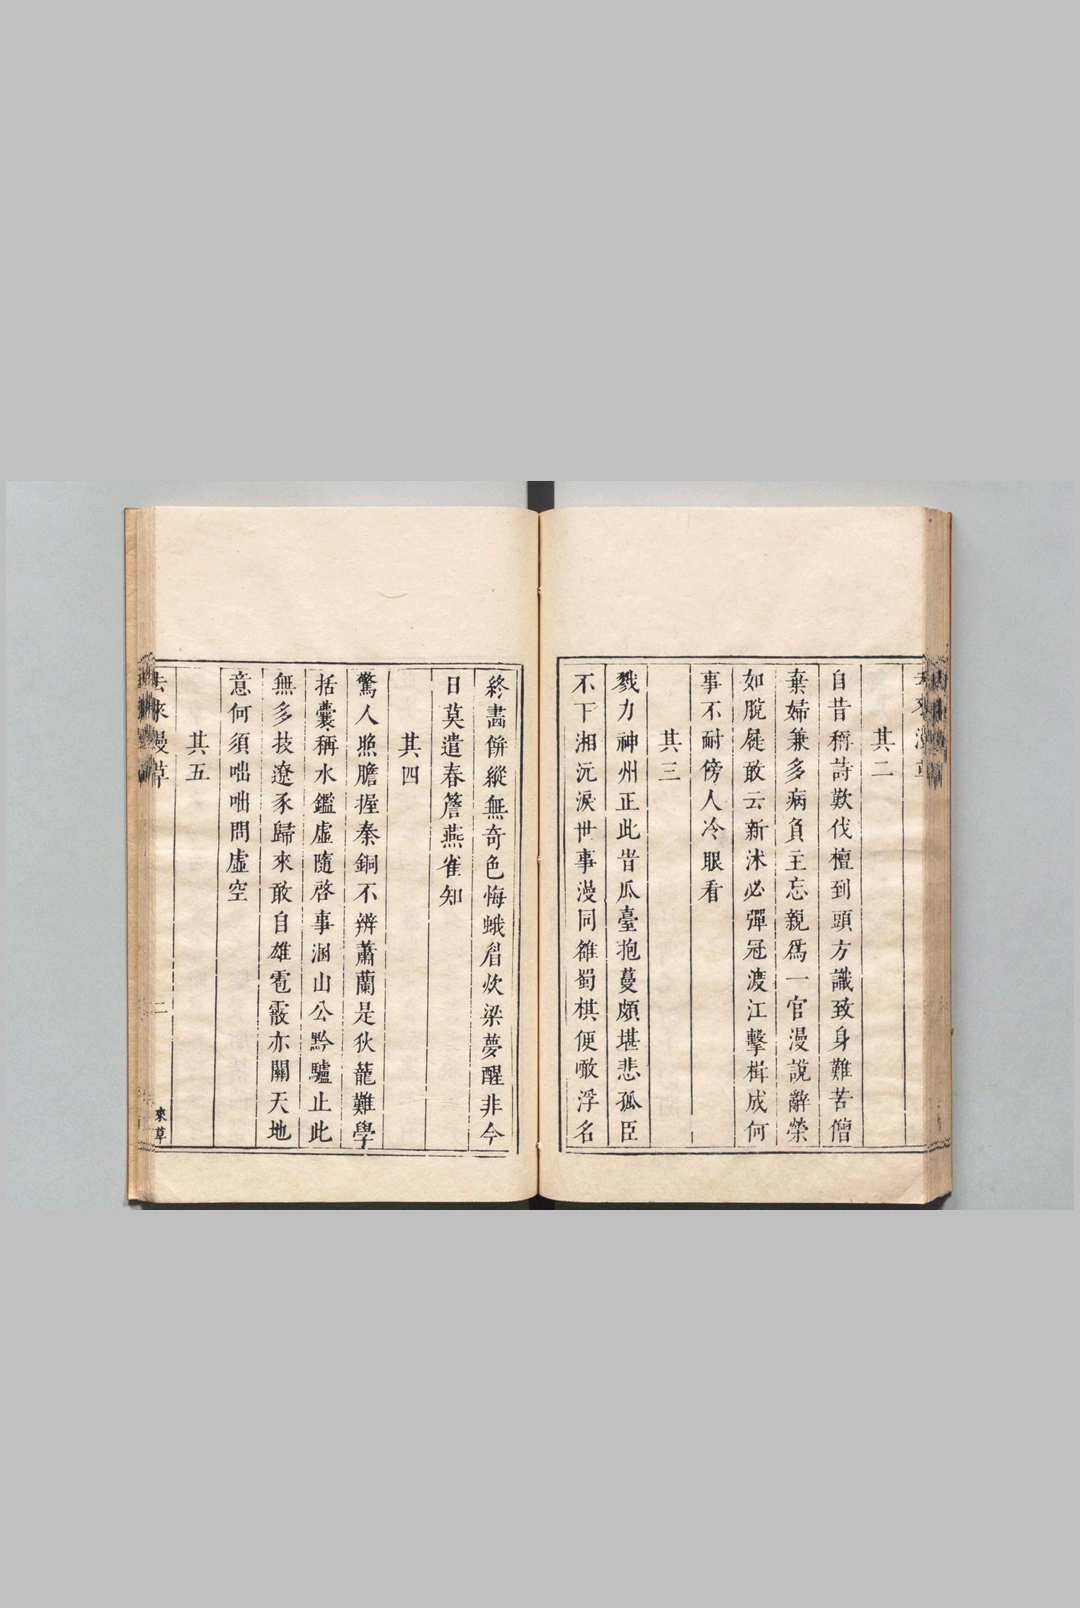 其二
自昔稱詩歎伐檀到頭方識致身難苦僧
棄婦兼多病負主忘親爲一官漫說辭榮
如脫屣敢云新沐必彈冠渡江擊楫成何
事不耐傍人冷眼看
其三
戮力神州正此時瓜臺抱蔓頗堪悲孤臣
不下湘沅淚世事漫同雒蜀棋便噉浮名
終畫餅縱無奇色悔蛾眉炊梁夢醒非今
日莫遣春簷燕雀知
其四
驚人照膽握秦銅不辨蕭蘭是狄蘢難學
括囊稱水鑑虛隨啓事溷山公黔驢止此
無多技遼豕歸來敢自雄雹霰亦關天地
意何須咄咄問虛空
其五
去來漫草
二
來草